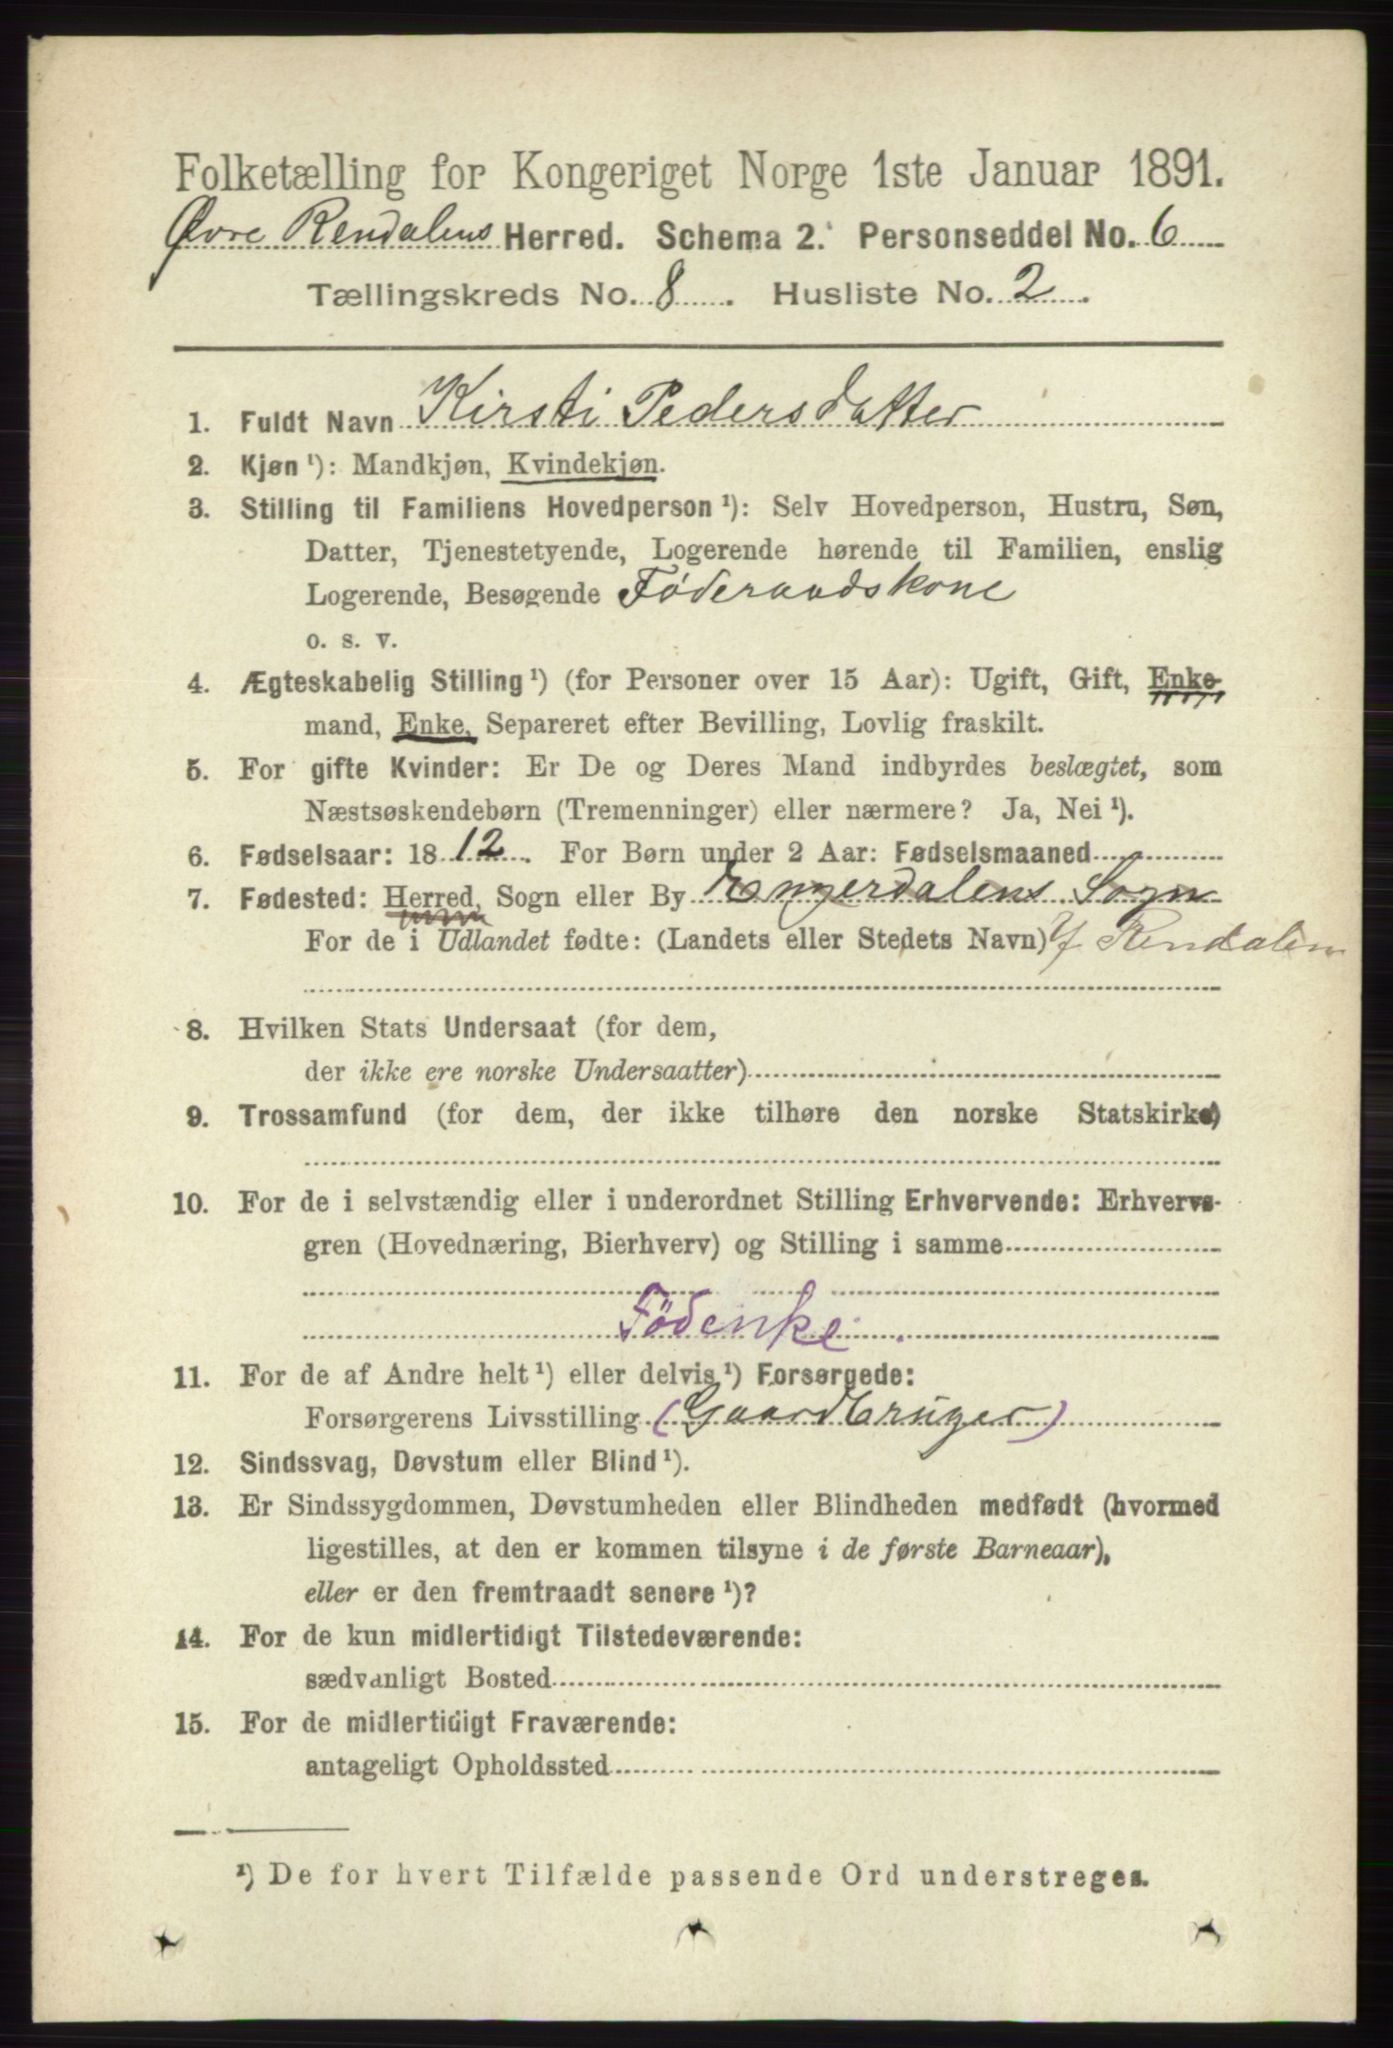 Folketælling for Kongeriget Norge 1ste Januar 1891.
Øvre Rendalens Herred. Schema 2. Personseddel No. 6
Tællingskreds No. 8. Husliste No. 2.
1. Fuldt Navn Kirsti Pedersdatter
2. Kjøn ¹): Mandkjøn, Kvindekjøn.
3. Stilling til Familiens Hovedperson ¹): Selv Hovedperson, Hustru, Søn,
Datter, Tjenestetyende, Logerende hørende til Familien, enslig
Logerende, Besøgende Føderaadskone
o. s. v.
4. Ægteskabelig Stilling ¹) (for Personer over 15 Aar): Ugift, Gift, Enke-
mand, Enke, Separeret efter Bevilling, Lovlig fraskilt.
5. For gifte Kvinder: Er De og Deres Mand indbyrdes beslægtet, som
Næstsøskendebørn (Tremenninger) eller nærmere? Ja, Nei ¹).
6. Fødselsaar: 1812. For Børn under 2 Aar: Fødselsmaaned
7. Fødested: Herred, Sogn eller By Engerdalens Sogn
For de i Udlandet fødte: (Landets eller Stedets Navn) Y Rendalen
8. Hvilken Stats Undersaat (for dem,
der ikke ere norske Undersaatter)
9. Trossamfund (for dem, der ikke tilhøre den norske Statskirke)
10. For de i selvstændig eller i underordnet Stilling Erhvervende: Erhvervs-
gren (Hovednæring, Bierhverv) og Stilling i samme
Fødenke.
11. For de af Andre helt ¹) eller delvis ¹) Forsørgede:
Forsørgerens Livsstilling (Gaardbruger)
12. Sindssvag, Døvstum eller Blind ¹).
13. Er Sindssygdommen, Døvstumheden eller Blindheden medfødt (hvormed
ligestilles, at den er kommen tilsyne i de første Barneaar),
eller er den fremtraadt senere ¹)?
14. For de kun midlertidigt Tilstedeværende:
sædvanligt Bosted
15. For de midlertidigt Fraværende:
antageligt Opholdssted
¹) De for hvert Tilfælde passende Ord understreges.